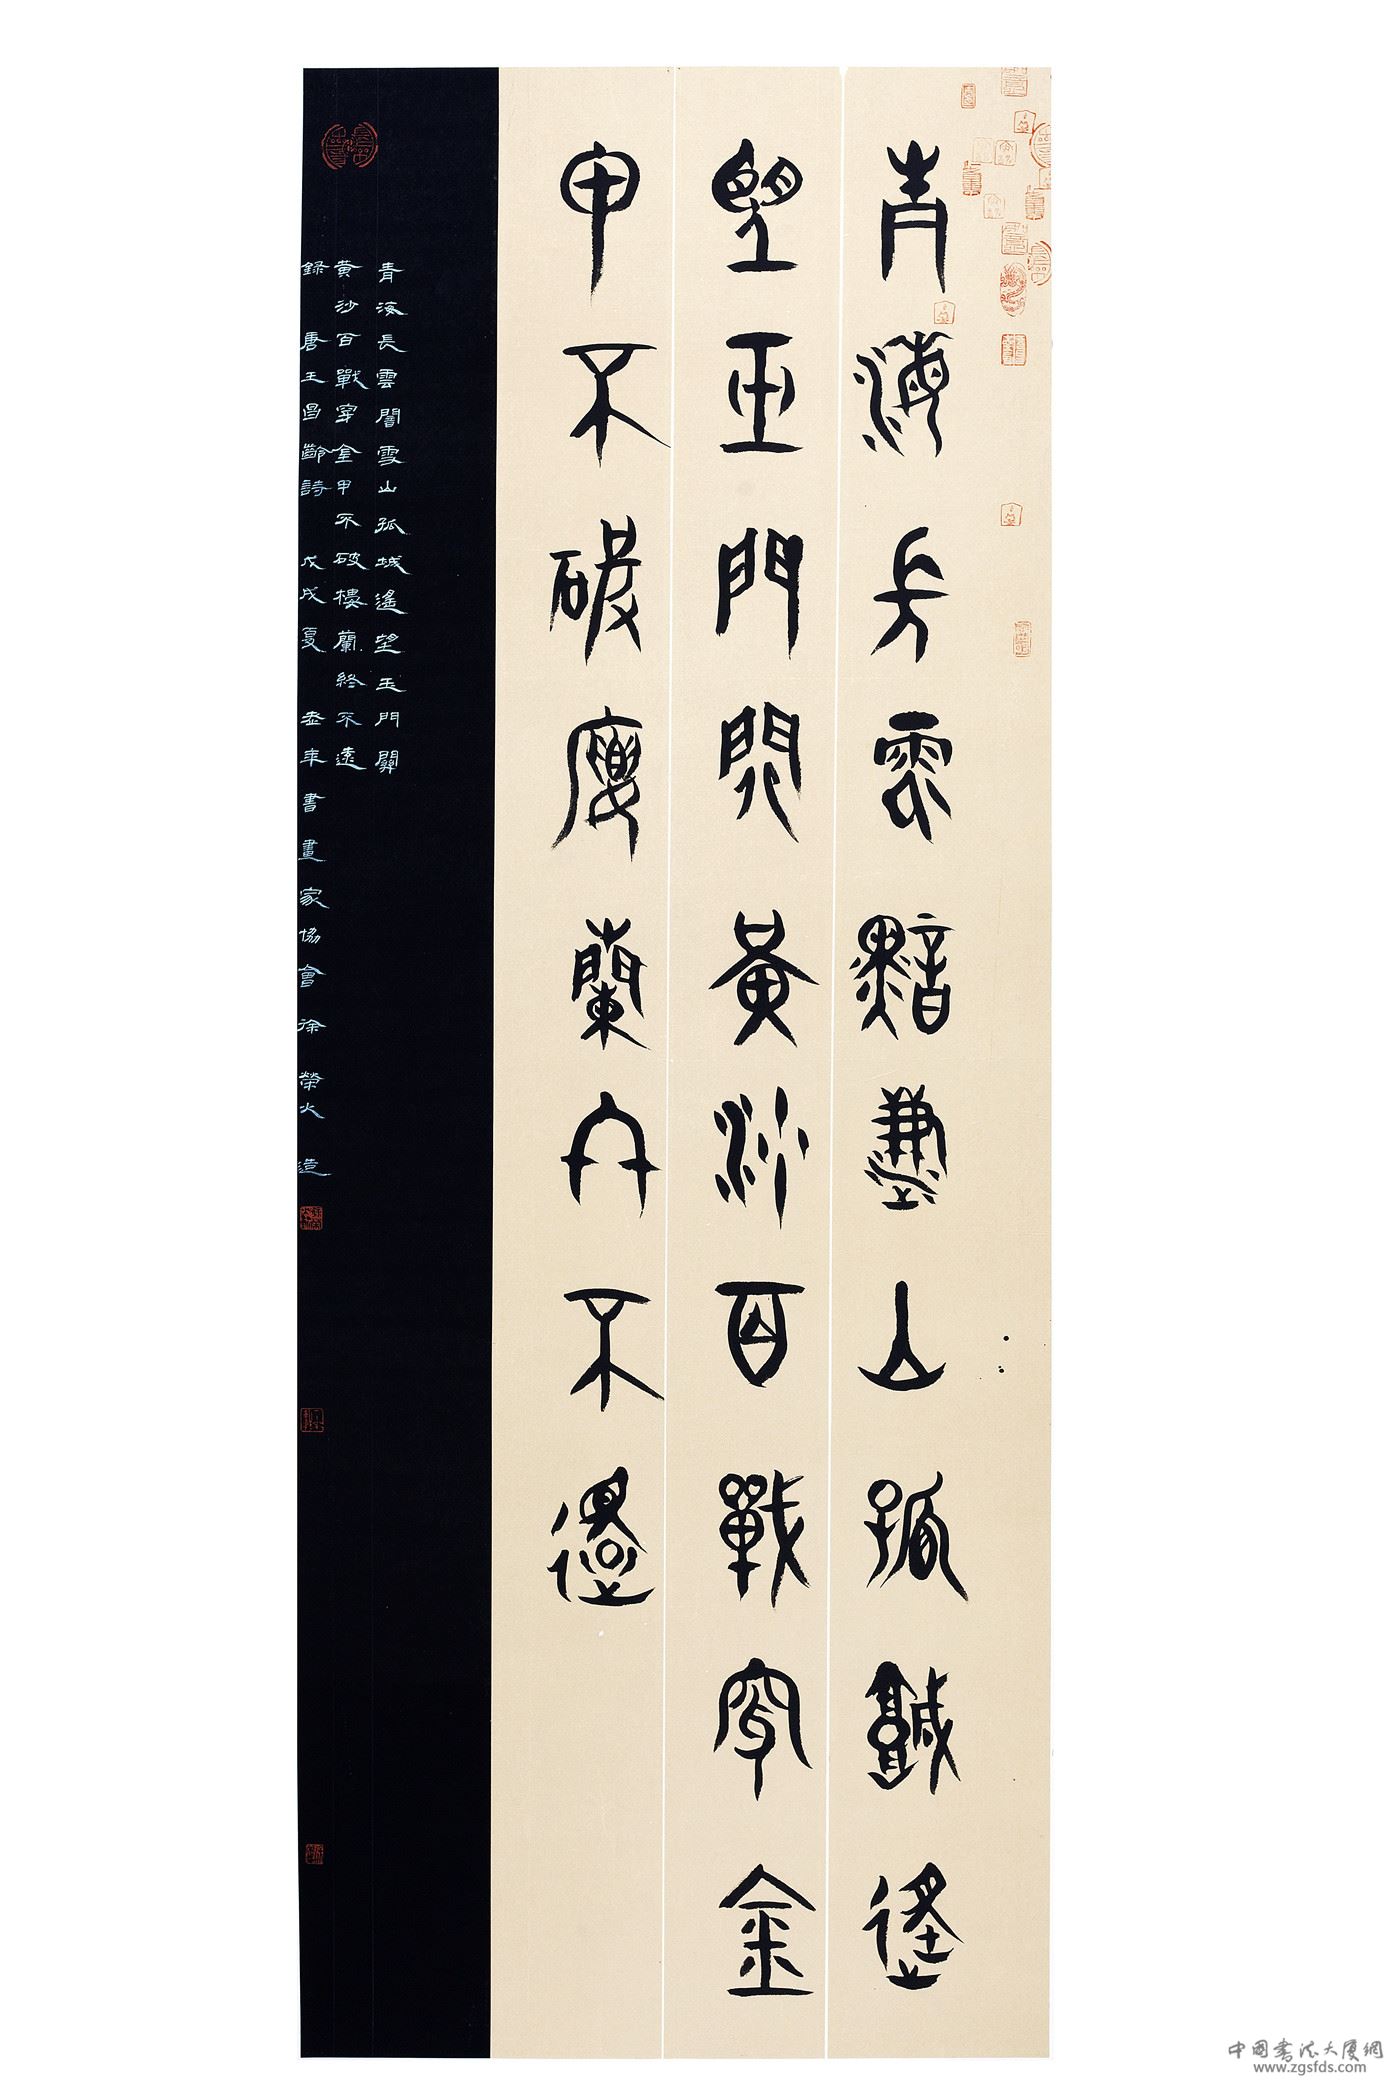 青海長雲黯雪山孤城遙
望玉門關黃沙百戰穿金
甲不破樓蘭終不還
青海長雲闇雪山孤城遙望玉門關
黃沙百戰穿金甲不破樓蘭終不還
錄 唐王昌齡詩 戊戌夏 書畫家協會 徐榮火 造
中国書法大厦網
www.zgsfds.com